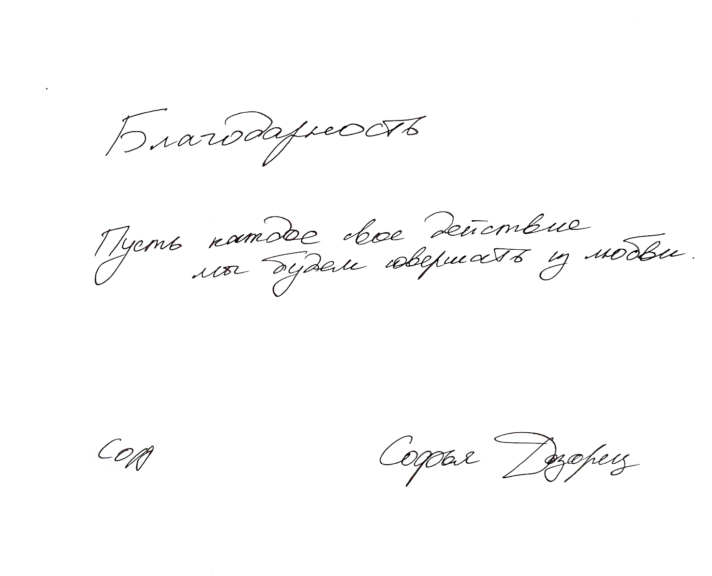 Благодарность
Пусть каждое свое действие
мы будем совершать из любви.
Софья Дозорец